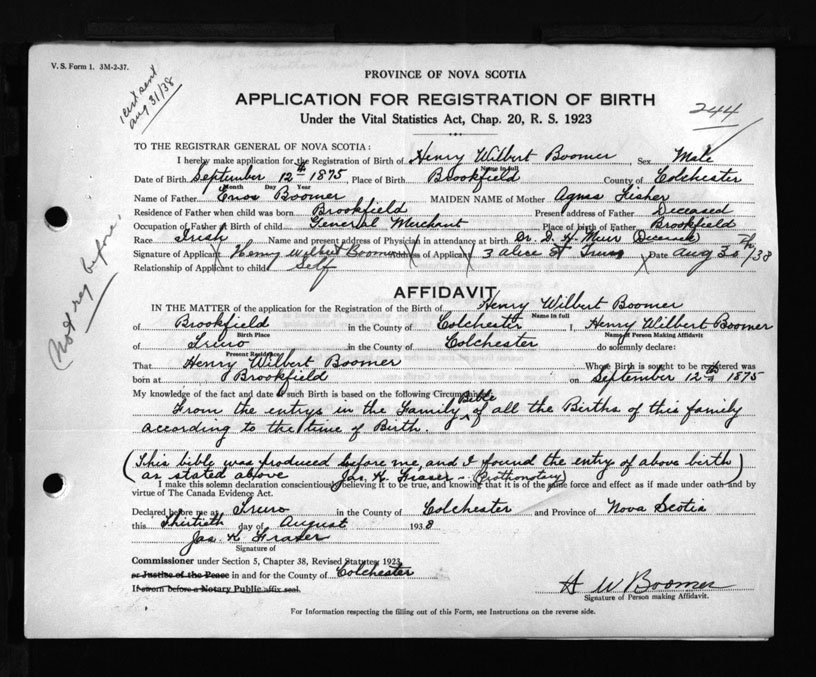 V. S. Form 1. 3M-2-37.
cert sent
aug 31/38
PROVINCE OF NOVA SCOTIA
APPLICATION FOR REGISTRATION OF BIRTH
Under the Vital Statistics Act, Chap. 20, R. S. 1923
244
TO THE REGISTRAR GENERAL OF NOVA SCOTIA:
I hereby make application for the Registration of Birth of Henry Wilbert Boomer, Sex Male
Name in full
Date of Birth September 12th 1875, Place of Birth Brookfield County of Colchester
Month Day Year
Name of Father Enos Boomer MAIDEN NAME of Mother Agnes Fisher
Residence of Father when child was born Brookfield Present address of Father Deceased
Occupation of Father at Birth of child General Merchant Place of birth of Father Brookfield
Race Irish Name and present address of Physician in attendance at birth Dr. D. H. Muir
Signature of Applicant Henry Wilbert Boomer Address of Applicant 3 alice St Truro Date Aug 30th/38
Relationship of Applicant to child Self
Not reg before.
AFFIDAVIT
IN THE MATTER of the application for the Registration of the Birth of Henry Wilbert Boomer
Name in full
of Brookfield in the County of Colchester I, Henry Wilbert Boomer
Birth Place Name of Person Making Affidavit
of Truro in the County of Colchester do solemnly declare:
Present Residence
That Henry Wilbert Boomer Whose Birth is sought to be registered was
born at Brookfield on September 12th 1875
My knowledge of the fact and date of such Birth is based on the following Circumstances
From the entrys in the Family Bible of all the Births of this family
according to the time of Birth.
(This bible was produced before me, and I found the entry of above birth)
as stated above Jas. K. Fraser - Prothonotary)
I make this solemn declaration conscientiously believing it to be true, and knowing that it is of the same force and effect as if made under oath and by
virtue of The Canada Evidence Act.
Declared before me at Truro in the County of Colchester and Province of Nova Scotia
this Thirtieth day of August 1938
Jas. K Fraser
Signature of
Commissioner under Section 5, Chapter 38, Revised Statutes, 1923
or Justice of the Peace in and for the County of Colchester
If sworn before a Notary Public affix seal.
H W Boomer
Signature of Person making Affidavit.
For Information respecting the filling out of this Form, see Instructions on the reverse side.